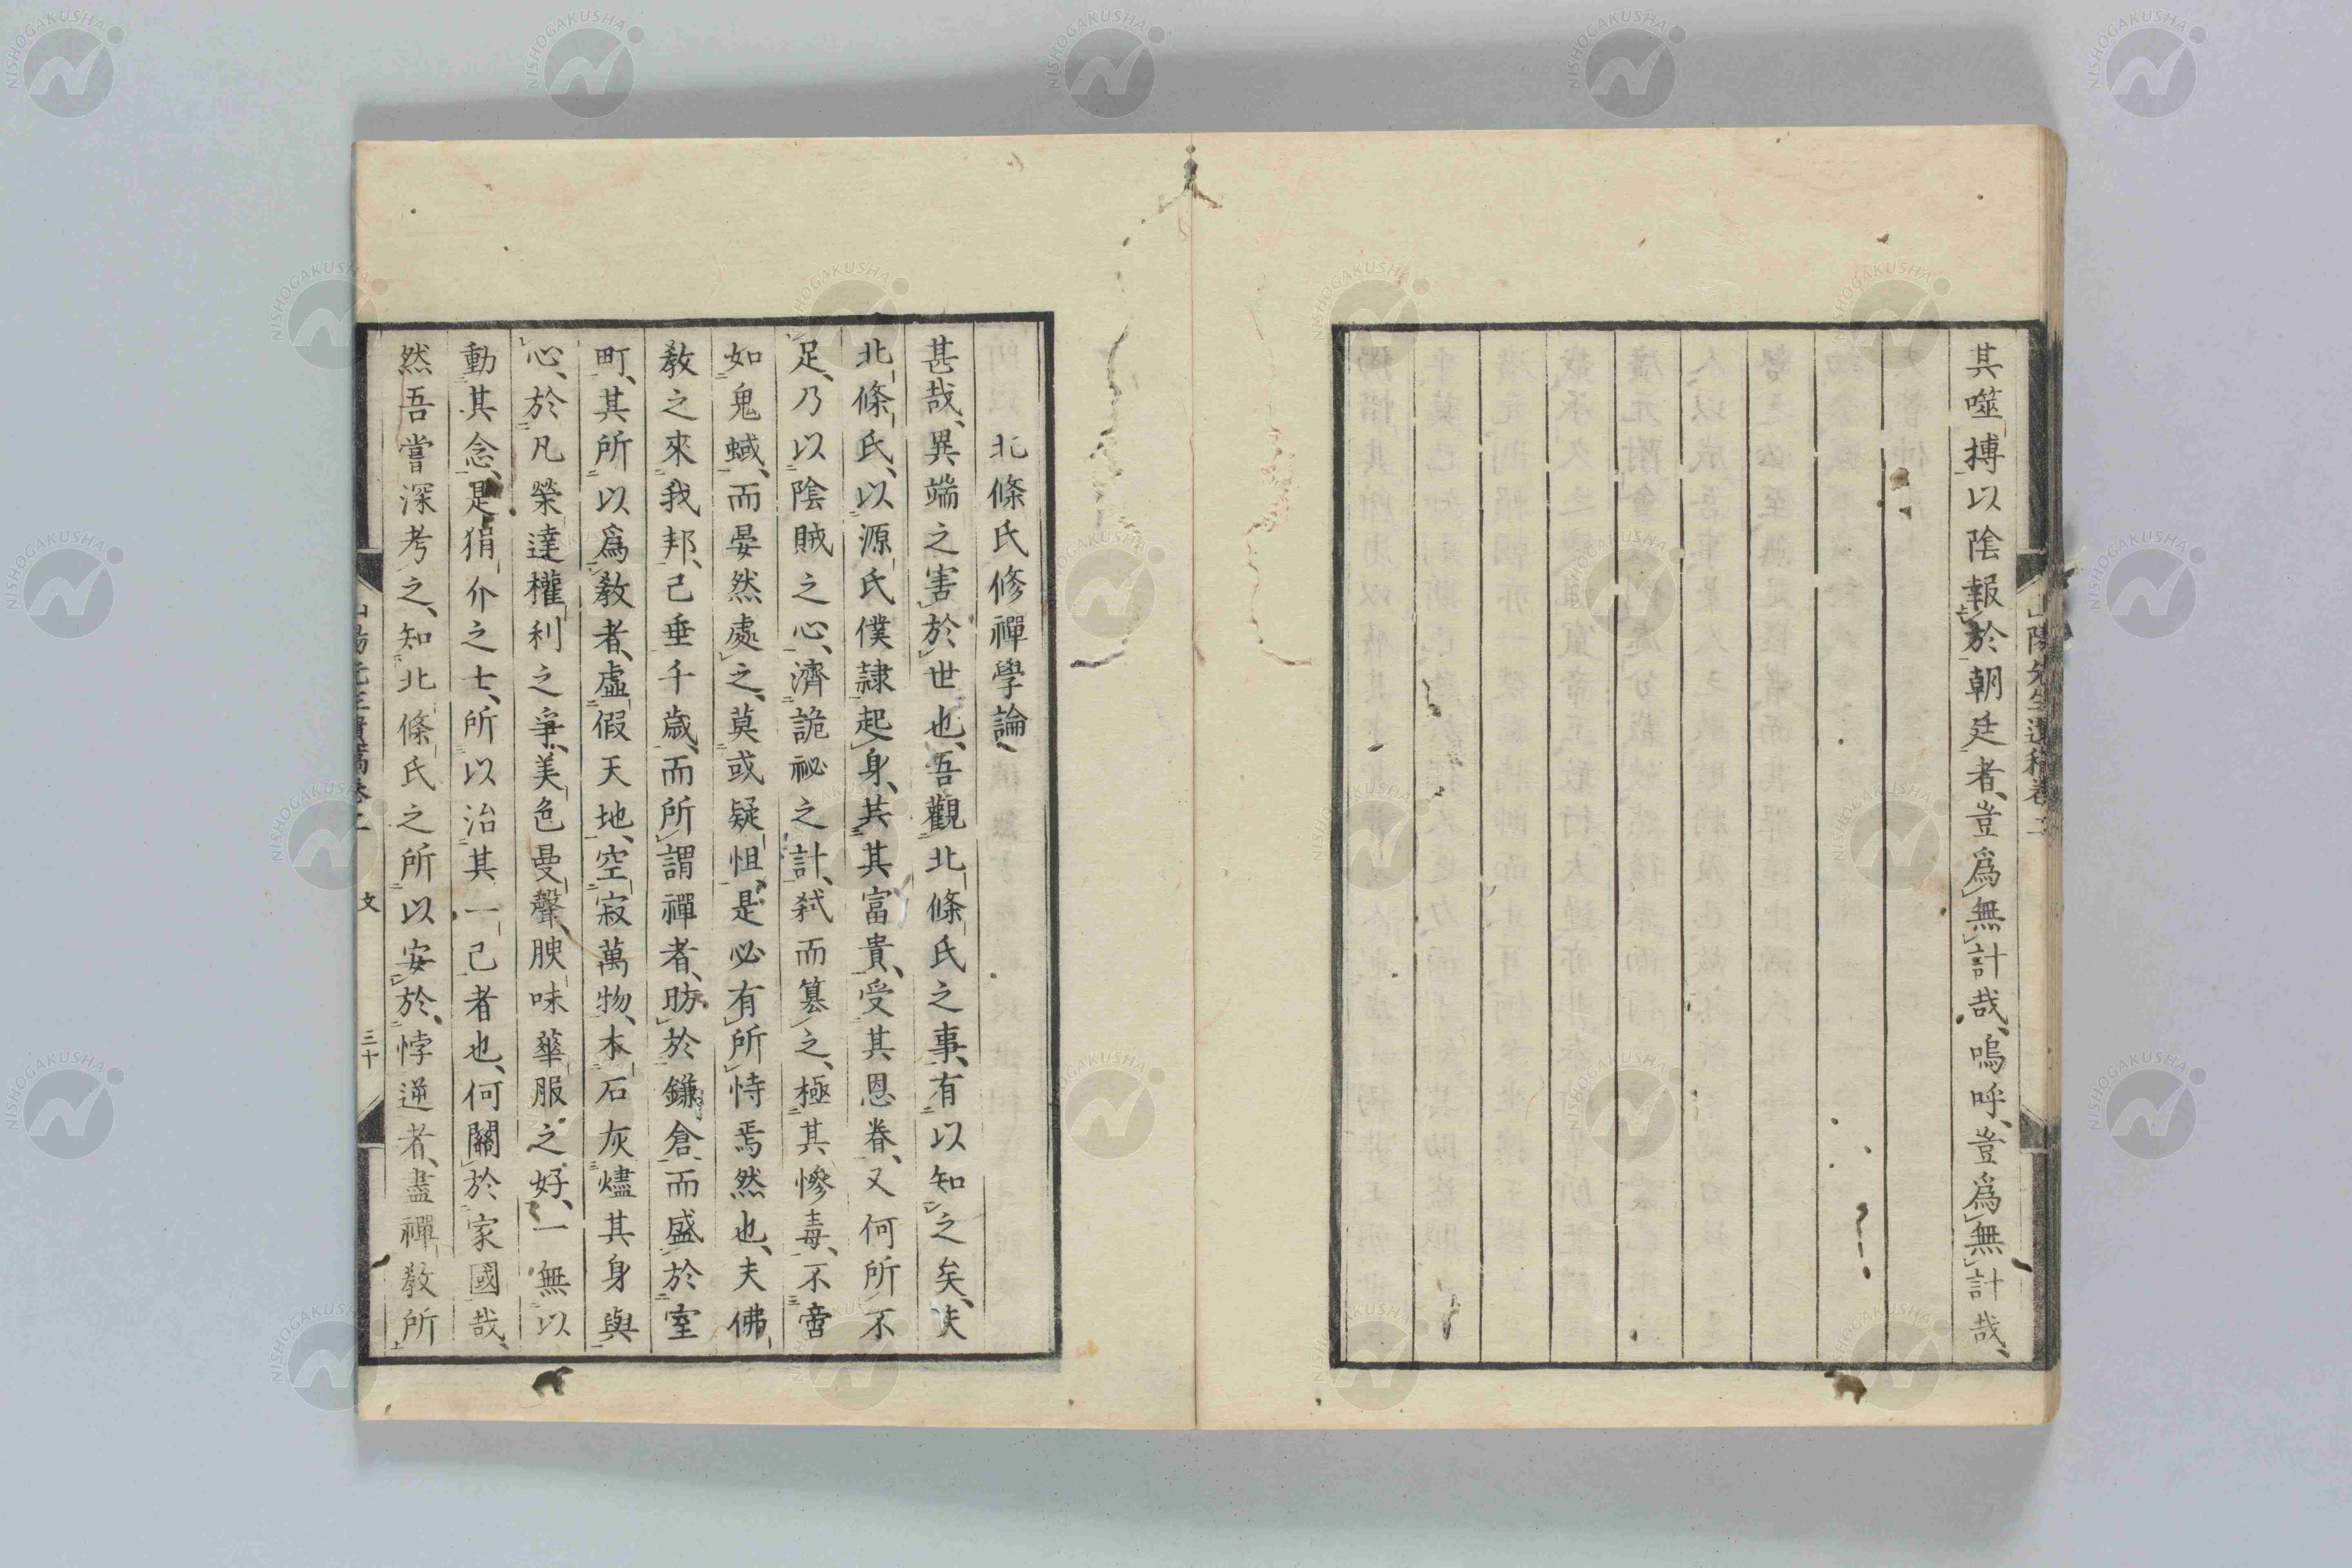 其噬搏以陰報於朝廷者、豈爲無計哉、嗚呼、豈爲無計哉、
山陽先生遺稿卷二
北條氏修禪學論
甚哉、異端之害於世也、吾觀北條氏之事、有以知之矣、夫
北條氏、以源氏僕隷起身、共其富貴、受其恩眷、又何所不
足、乃以陰賊之心、濟詭祕之計、弑而篡之、極其慘毒、不啻
如鬼蜮、而晏然處之、莫或疑怛、是必有所恃焉然也、夫佛
教之來我邦、已垂千歲、而所謂禪者、昉於鎌倉、而盛於室
町、其所以爲教者、虛假天地、空寂萬物、木石灰燼其身與
心、於凡榮達權利之爭、美色曼聲腴味華服之好、一無以
動其念、是狷介之士、所以治其一己者也、何關於家國哉、
然吾嘗深考之、知北條氏之所以安於悖逆者、盡禪教所
山陽先生遺稿卷二 文 三十
NISHOGAKUSHA